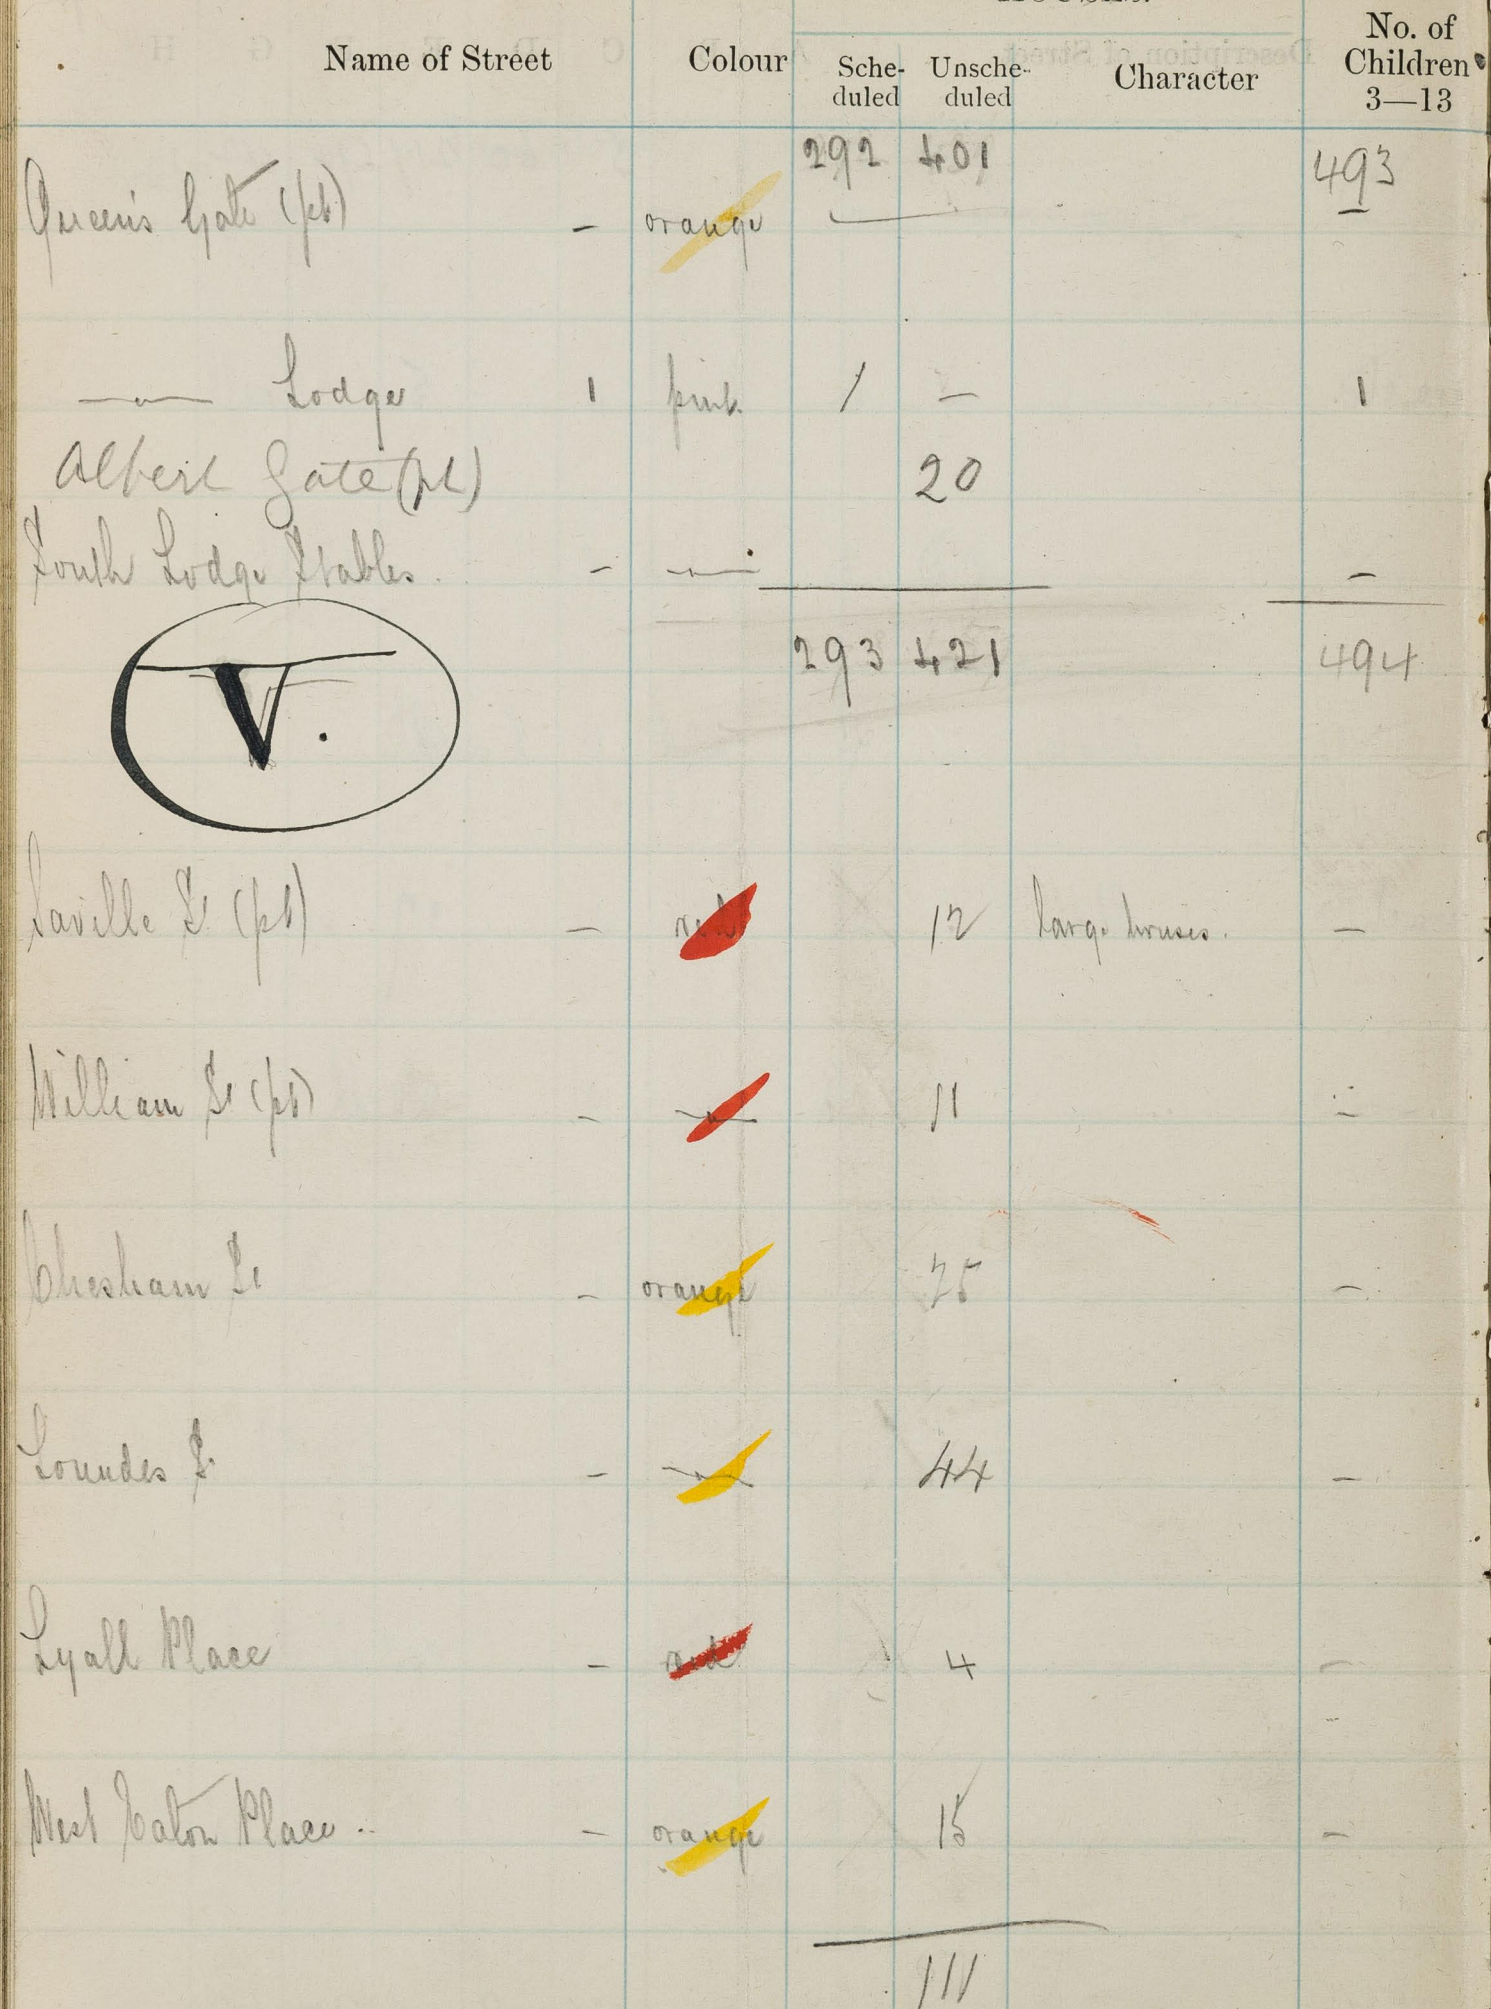 HOUSES.
Name of Street Colour Sche-duled Unsche-duled Character No. of Children 3—13
292 401 493
Queen's Gate (pt) - orange -
—"— Lodge 1 pink 1 - 1
Albert Gate (pt) 20
South Lodge Stables. - —"— -
293 421 494
V.
Saville St (pt) - red 12 large houses. -
William St (pt) - —"— 11 -
Chesham St - orange 25 -
Lowndes St - —"— 44 -
Lyall Place - red 4 -
West Eaton Place - orange 15 -
111